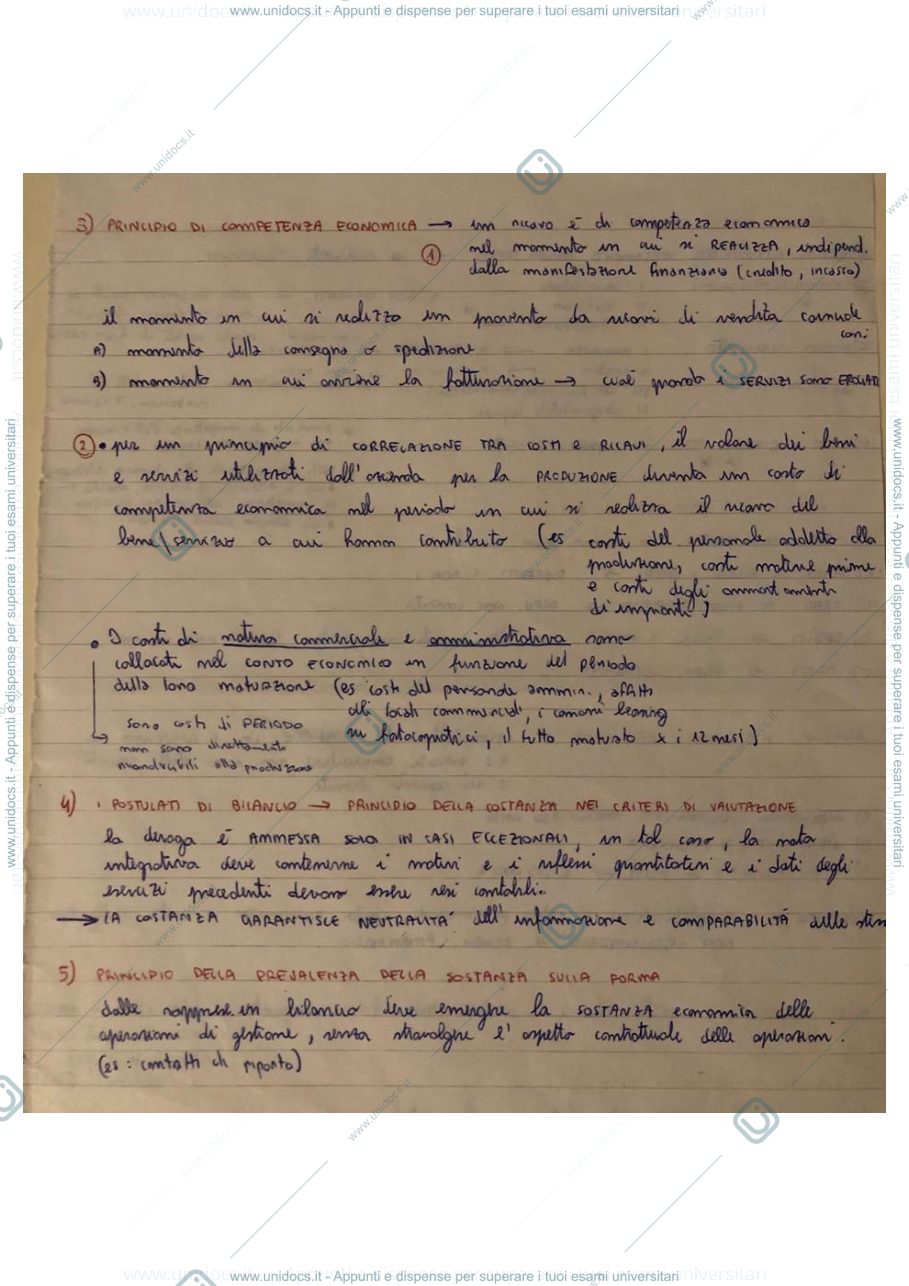 www.unidocs.it - Appunti e dispense per superare i tuoi esami universitari
3) PRINCIPIO DI COMPETENZA ECONOMICA → un ricavo è di competenza economica
① nel momento in cui si REALIZZA, indipend.
dalla manifestazione finanziaria (credito, incasso)
il momento in cui si realizza un provento da ricavi di vendita coincide
con:
A) momento della consegna o spedizione
B) momento in cui avviene la fatturazione → cioè quando i SERVIZI sono EROGATI
② • per un principio di CORRELAZIONE TRA COSTI e RICAVI, il valore dei beni
e servizi utilizzati dall'azienda per la PRODUZIONE diventa un costo di
competenza economica nel periodo in cui si realizza il ricavo del
bene/servizio a cui hanno contribuito (es costi del personale addetto alla
produzione, costi materie prime
e costi degli ammortamenti
di impianti)
• I costi di natura commerciale e amministrativa sono
collocati nel CONTO ECONOMICO in funzione del periodo
della loro maturazione (es costi del personale ammin., affitti
dei locali commerciali, i canoni leasing
su fotocopiatrici, il tutto maturato x i 12 mesi)
→ sono costi di PERIODO
non sono direttamente
riconducibili alla produzione
4) i POSTULATI DI BILANCIO → PRINCIPIO DELLA COSTANZA NEI CRITERI DI VALUTAZIONE
la deroga è AMMESSA solo IN CASI ECCEZIONALI, in tal caso, la nota
integrativa deve contenerne i motivi e i riflessi quantitativi e i dati degli
esercizi precedenti devono essere resi
→ LA COSTANZA GARANTISCE NEUTRALITÀ dell'informazione e COMPARABILITÀ delle
5) PRINCIPIO DELLA PREVALENZA DELLA SOSTANZA SULLA FORMA
dalle rappres. in bilancio deve emergere la SOSTANZA economica delle
operazioni di gestione, senza stravolgere l'aspetto contrattuale delle operazioni.
(es: contratti di riporto)
www.unidocs.it - Appunti e dispense per superare i tuoi esami universitari